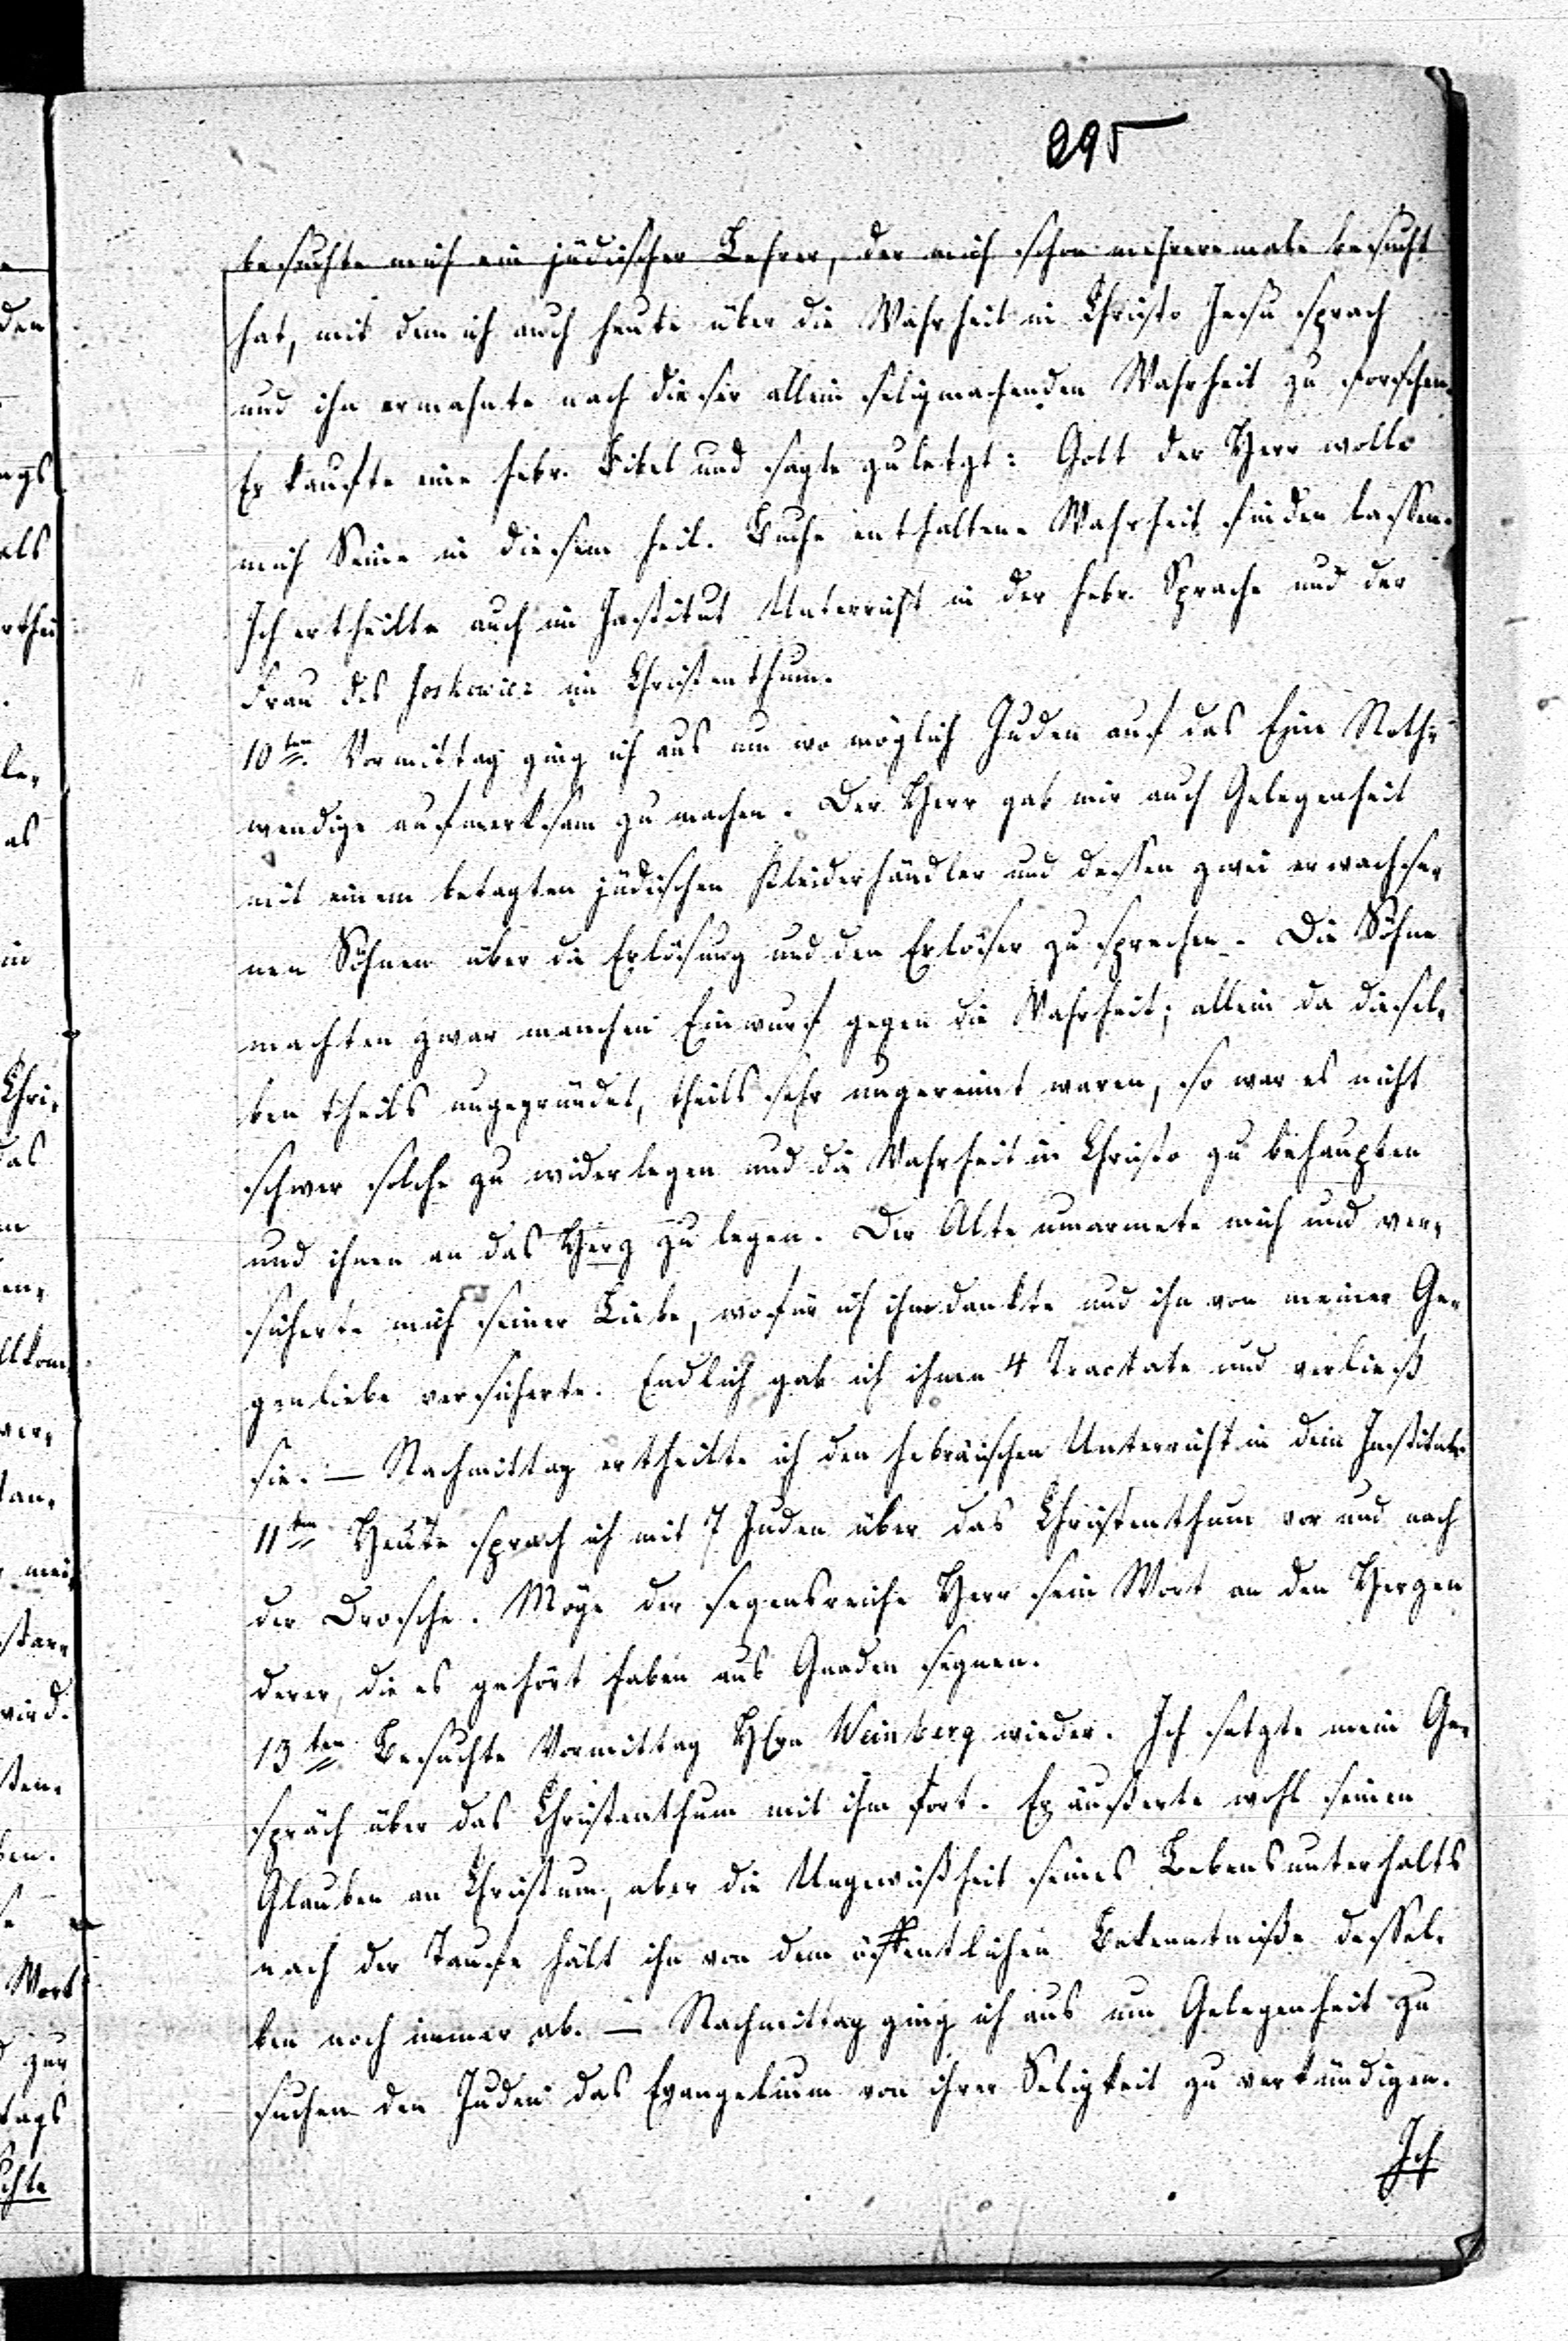 295
besuchte mich ein jüdischer Lehrer, der mich schon mehreremale besucht
hat, mit dem ich auch heute über die Wahrheit in Christo Jesu sprach
und ihn ermahnte nach dieser allein seligmachenden Wahrheit zu forschen.
Er kaufte eine hebr. Bibel und sagte zuletzt: Gott der Herr wolle
mich Seine in diesem heil. Buche enthaltene Wahrheit finden lassen.
Ich ertheilte auch im Institut Unterricht in der hebr. Sprache und der
Frau des Joskowicz im Christenthum.
10ten Vormittag ging ich aus um wo möglich Juden auf das Eine Noth-
wendige aufmerksam zu machen. Der Herr gab mir auch Gelegenheit
mit einem betagten jüdischen Kleiderhändler und dessen zwei erwachse-
nen Söhnen über die Erlösung und den Erlöser zu sprechen. Die Söhne
machten zwar manchen Einwurf gegen die Wahrheit; allein da diesel-
ben theils ungegründet, theils sehr ungereimt waren, so war es nicht
schwer solche zu widerlegen und die Wahrheit in Christo zu behaupten
und ihnen an das Herz zu legen. Der Alte umarmete mich und ver-
sicherte mich seiner Liebe, wofür ich ihm dankte und ihn von meiner Ge-
genliebe versicherte. Endlich gab ich ihnen 4 Tractate und verließ
sie. — Nachmittag ertheilte ich den hebräischen Unterricht in dem Institute.
11ten Heute sprach ich mit 7 Juden über das Christenthum vor und nach
der Drosche. Möge der segensreiche Herr sein Wort an den Herzen
derer, die es gehört haben aus Gnaden segnen.
13ten Besuchte Vormittag Hrn Weinberg wieder. Ich setzte mein Ge-
spräch über das Christenthum mit ihm fort. Er äußerte wohl seinen
Glauben an Christum, aber die Ungewißheit seines Lebensunterhalts
nach der Taufe hält ihn von dem öffentlichen Bekenntniße dessel-
ben noch immer ab. — Nachmittag ging ich aus um Gelegenheit zu
suchen den Juden das Evangelium von ihrer Seligkeit zu verkündigen.
Ich